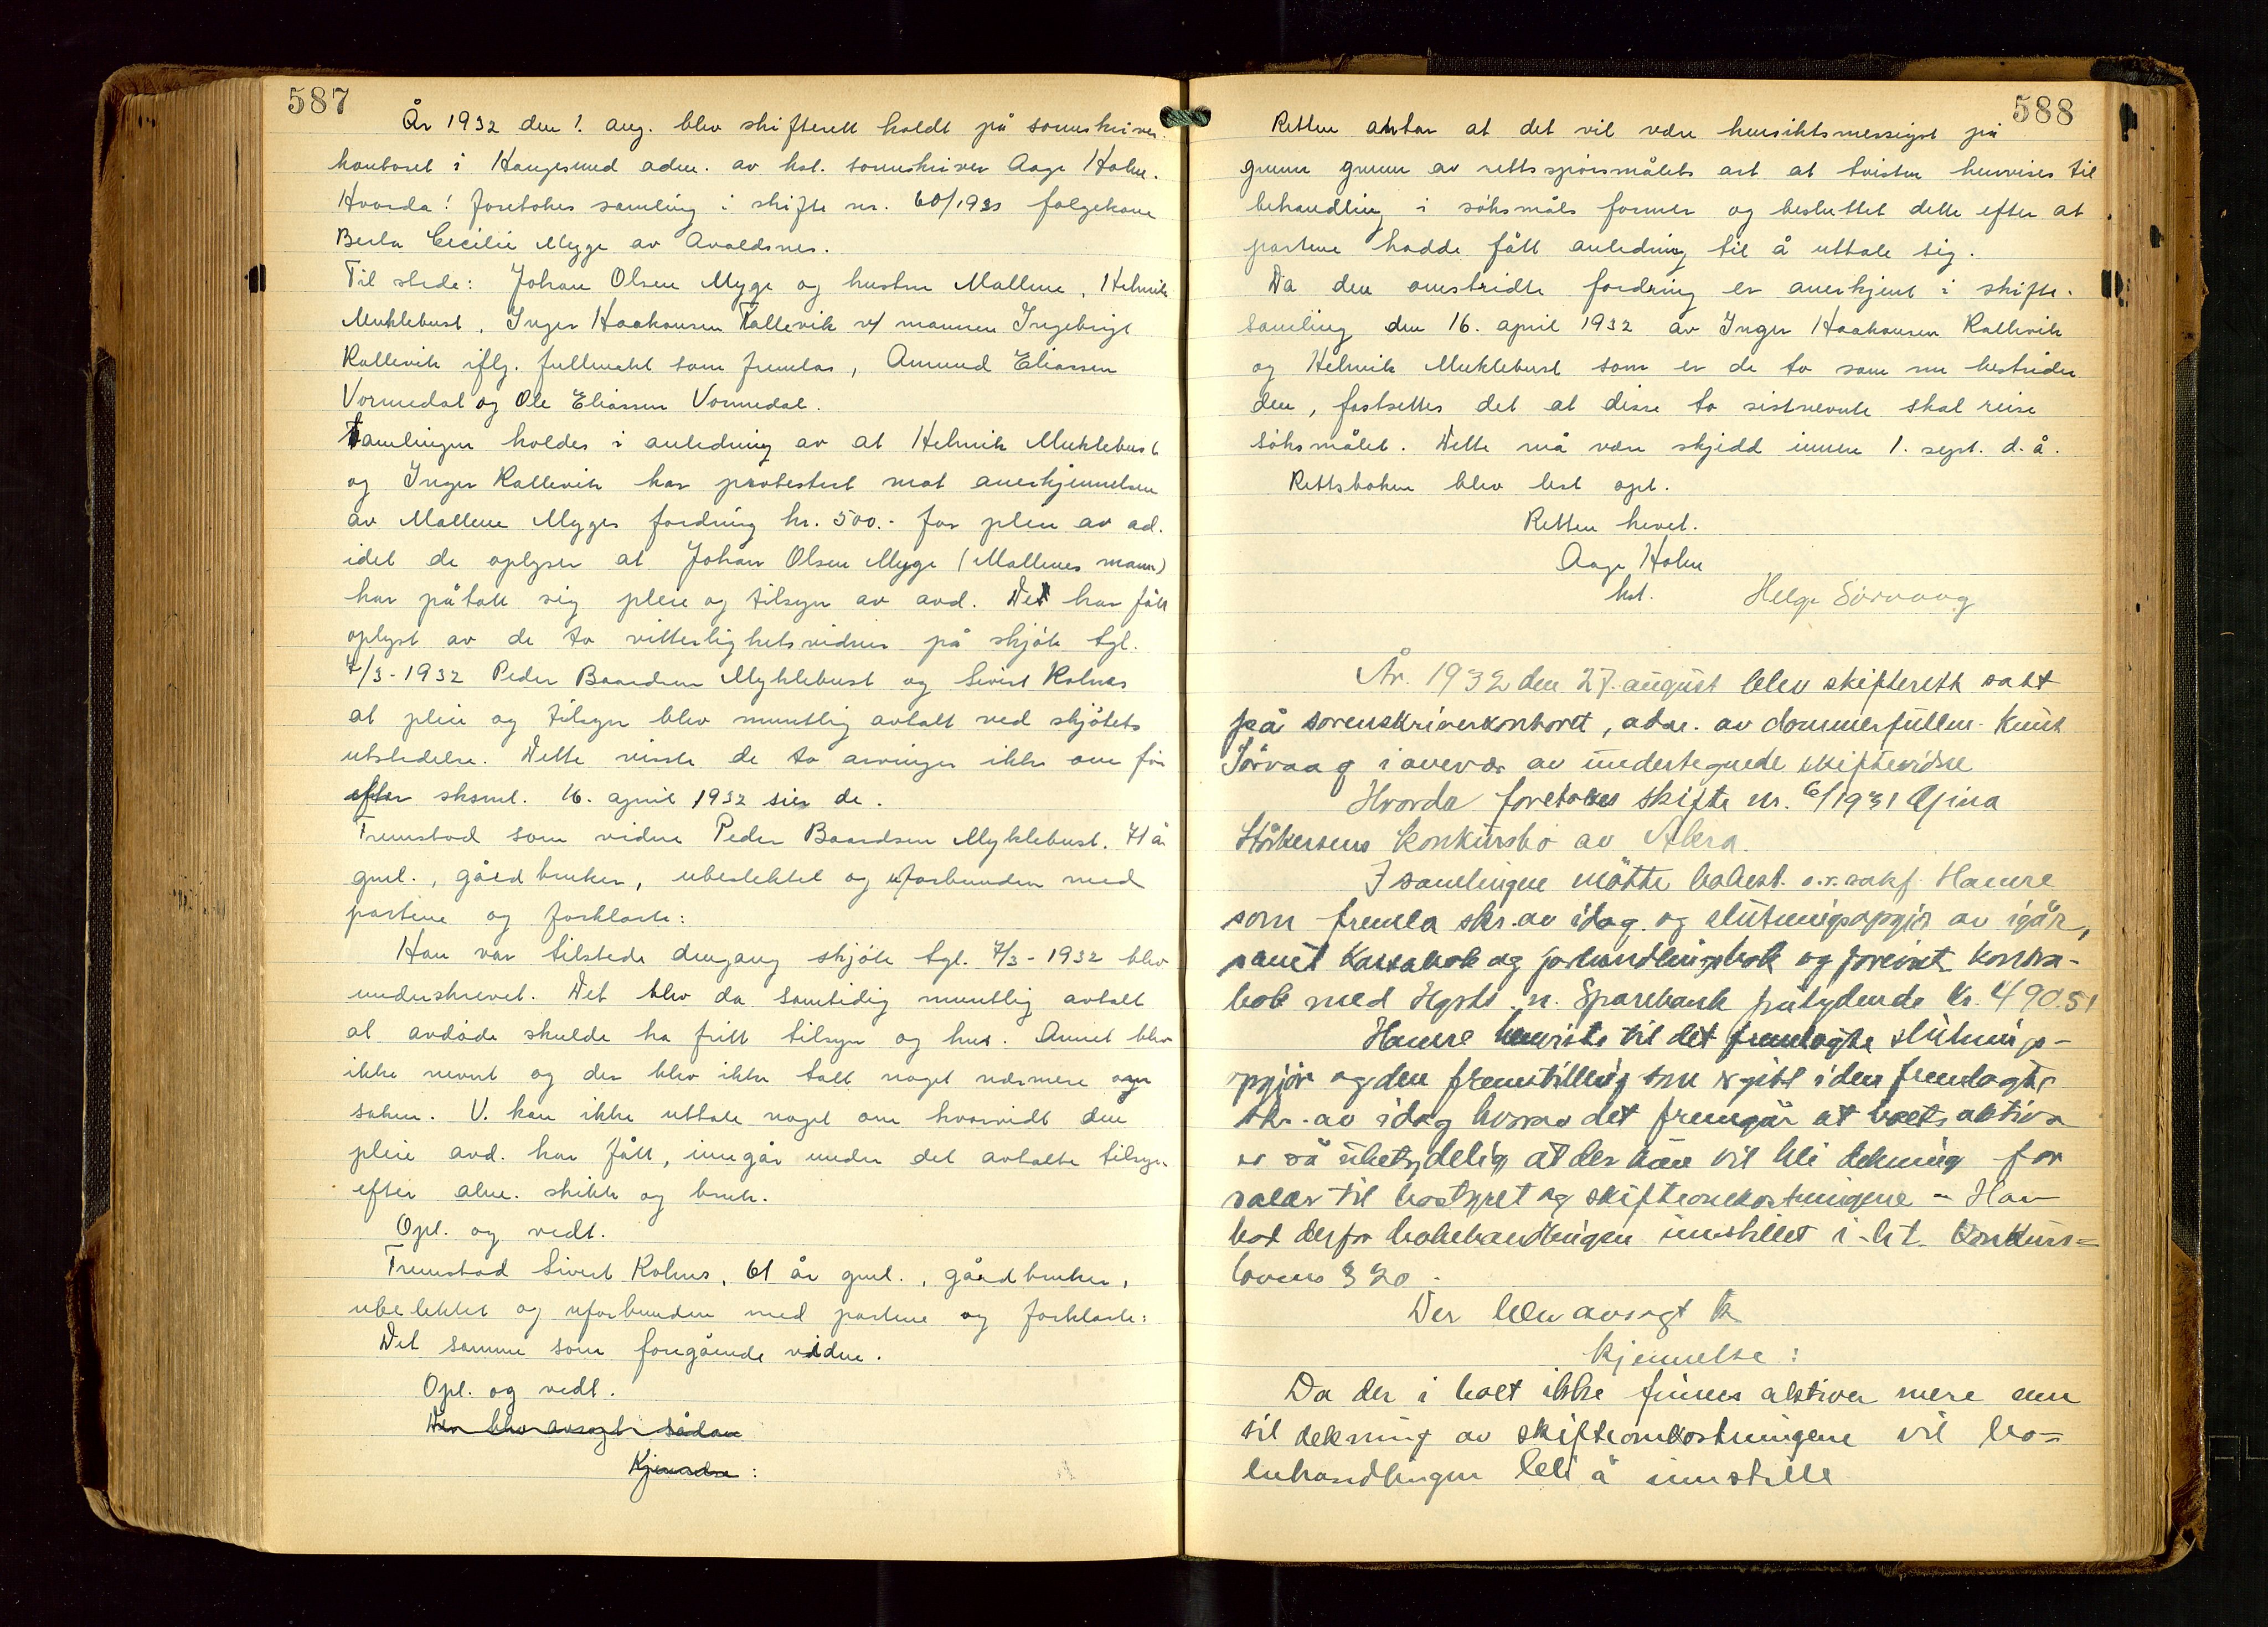 587
År 1932 den 1. aug. blev skifterett holdt på sorenskriver-
kontoret i Haugesund adm. av kst. sorenskriver Aage Holm.
Hvorda! foretokes samling i skifte nr. 60/1931 følgekone
Berta Cecilie Myge av Avaldsnes.
Til stede: Johan Olsen Myge og hustru Mallene, Helmik
Muklebust, Inger Haakonsen Kallevik v/ mannen Ingebrigt
Kallevik iflg. fullmakt som fremlas, Amund Eliassen
Vormedal og Ole Eliassen Vormedal.
Samlingen holdes i anledning av at Helmik Muklebust
og Inger Kallevik har protestert mot anerkjennelsen
av Mallene Myges fordring kr. 500.- for pleie av ad.
idet de oplyser at Johan Olsen Myge (Mallenes mann)
har påtatt sig pleie og tilsyn av avd. De har fått
oplyst av de to vitterlighetsvidner på skjöte tgl.
7/3-1932 Peder Baardsen Myklebust og Sivert Kolnes
at pleie og tilsyn blev muntlig avtalt ved skjötets
utstedelse. Dette visste de to arvinger ikke om før
efter sksml. 16. april 1932 sier de.
Fremstod som vidne Peder Baardsen Myklebust. 71 år
gml., gårdbruker, ubeslektet og uforbunden med
partene og forklarte:
Han var tilstede dengang skjöte tgl. 7/3-1932 blev
underskrevet. Det blev da samtidig muntlig avtalt
at avdöde skulde ha fritt tilsyn og hus. Annet blev
ikke nevnt og der blev ikke talt noget nærmere om
saken. V. kan ikke uttale noget om hvorvidt den
pleie avd. har fått, inngår under det avtalte tilsyn
efter alm. skikk og bruk.
Opl. og vedt.
Fremstod Sivert Kolnes, 61 år gml., gårdbruker,
ubeslektet og uforbunden med partene og forklarte:
Det samme som foregående vidne.
Opl. og vedt.
Der blev avsagt sådan
Kjennelse:
588
Retten antar at det vil være hensiktsmessigst på
grunn grunn av rettsspörsmålets art at tvisten henvises til
behandling i söksmåls former og besluttet dette efter at
partene hadde fått anledning til å uttale sig.
Da den omstridte fordring er anerkjent i skifte-
samling den 16. april 1932 av Inger Haakonsen Kallevik
og Helmik Muklebust som er de to som nu bestrider
den, fastsettes det at disse to sistnevnte skal reise
söksmålet. Dette må være skjedd innen 1. sept. d.å.
Rettsboken blev lest opl.
Retten hevet.
Aage Holm
kst. Helge Sörvaag
År 1932 den 27. august blev skifterett satt
på sorenskriverkontoret, adm. av dommerfullm. Knut
Sörvaag i overvær av undertegnede skiftevidne
Hvorda foretokes skifte nr. 6/1931 Gjina
Störkersens konkursbo av Åkra.
I samlingen mötte bobest. o.r.sakf. Hamre
som fremla skr. av idag og slutningsopgjör av igår,
samt kassabok og forhandlingsbok og forevist kontra-
bok med Hgsds. n. Sparebank pålydende kr. 490.51
Hamre henviste til det fremlagte slutnings-
opgjör og den fremstilling som er gitt i den fremlagte
skr. av idag hvorav det fremgår at boets aktiva
er så ubetydelig at der kun vil bli dekning for
salær til bostyret og skifteomkostningene - Han
bad derfor bobehandlingen innstillet i h.t. konkurs-
lovens § 20.
Der blev avsagt
kjennelse:
Da der i boet ikke finnes aktiver mere enn
til dekning av skifteomkostningene vil bo-
behandlingen bli å innstille